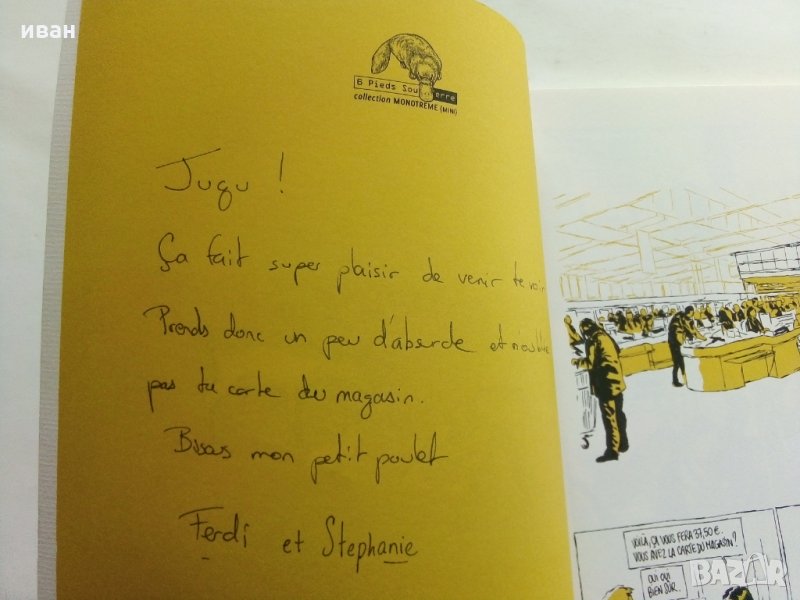 иван
6 Pieds Sou erre
collection MONOTRÈME (MINI)
Jugu !
Ça fait super plaisir de venir te voir
Prends donc un peu d'absurde et n'oublie
pas ta carte du magasin.
Bisous mon petit poulet
Ferdi et Stephanie
VOILÀ, ÇA VOUS FERA 37,50 €.
VOUS AVEZ LA CARTE DU MAGASIN?
OUI OUI
BIEN SÛR.
BAZAR